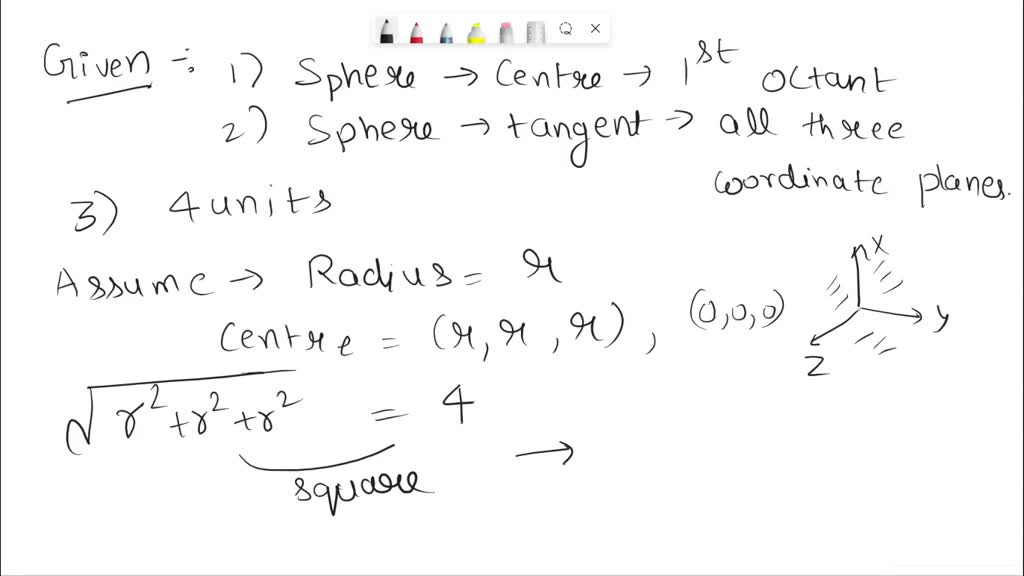 Given :- 1) Sphere → Centre → 1st octant
2) Sphere → tangent → all three
coordinate planes.
3) 4 units
Assume → Radius = r
Centre = (r, r, r), (0,0,0)
x
y
z
√r²+r²+r² = 4 →
square